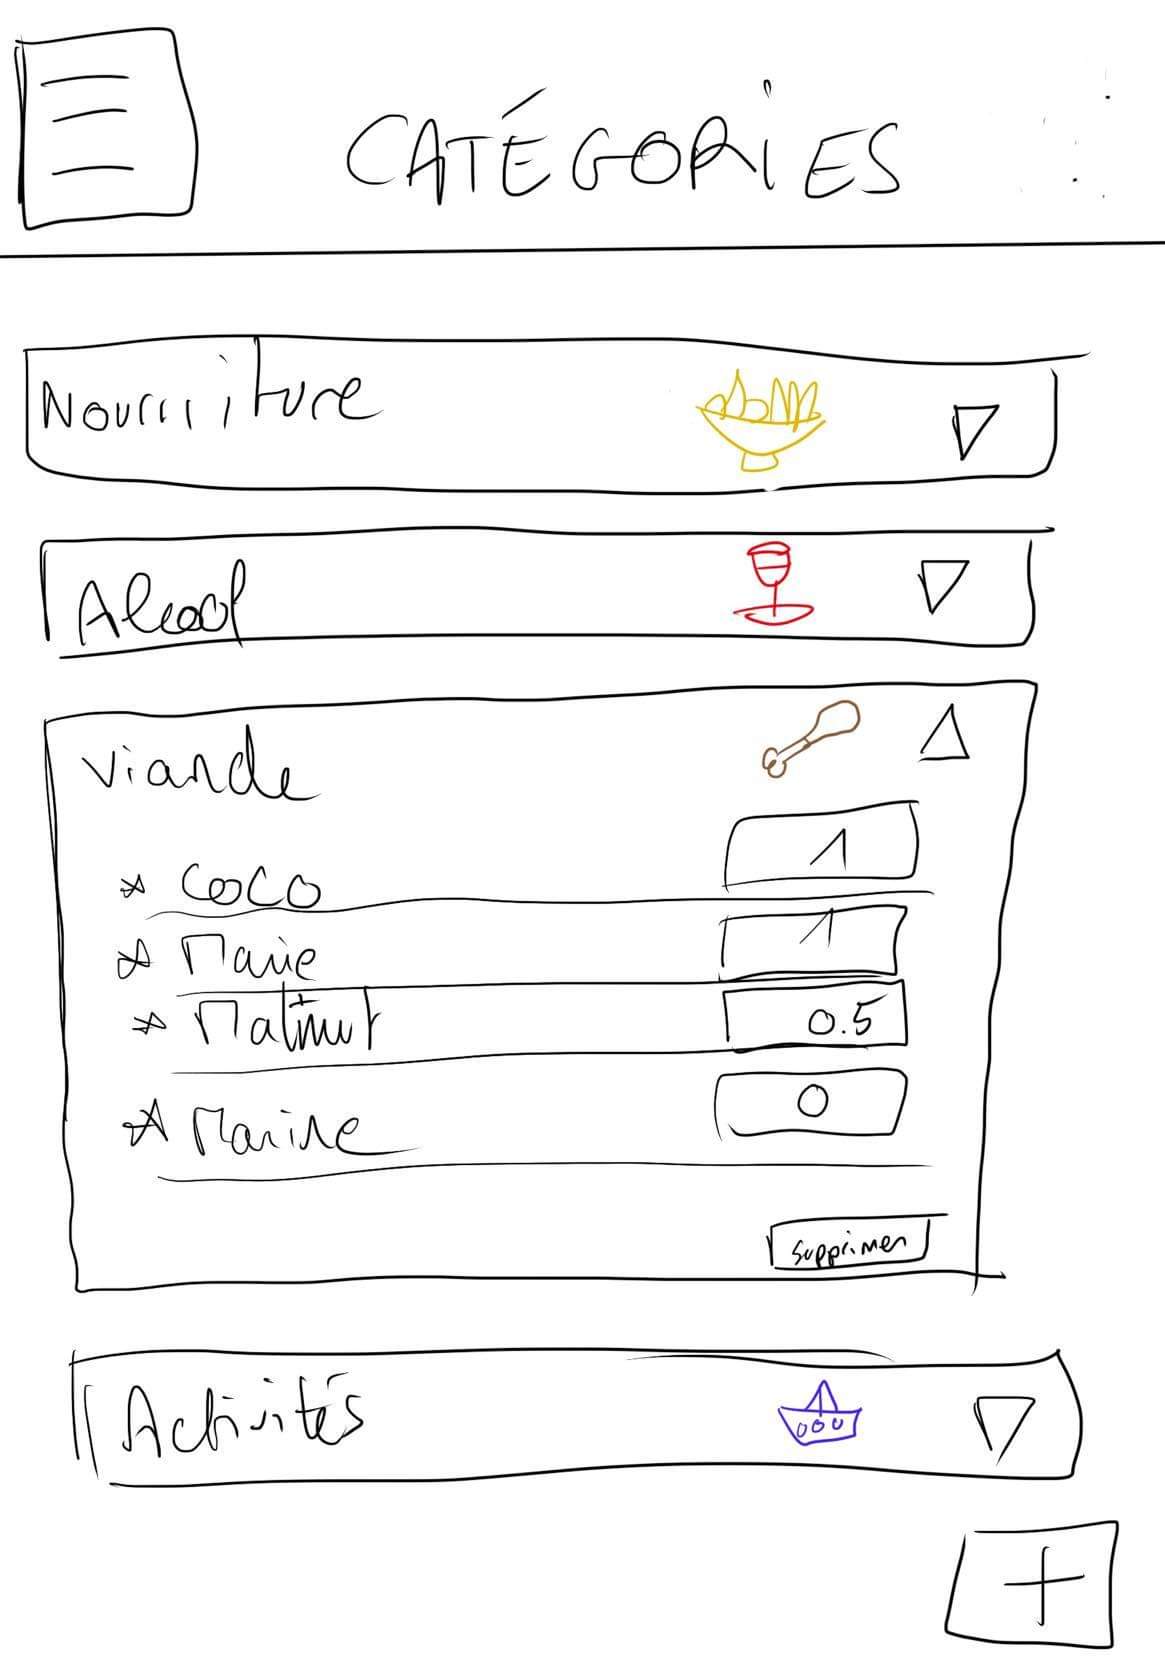 CATÉGORIES
Nourriiture
Alcool
Viande
* Coco 1
* Marie 1
* Matmut 0.5
* Marine 0
Supprimer
Activités
+